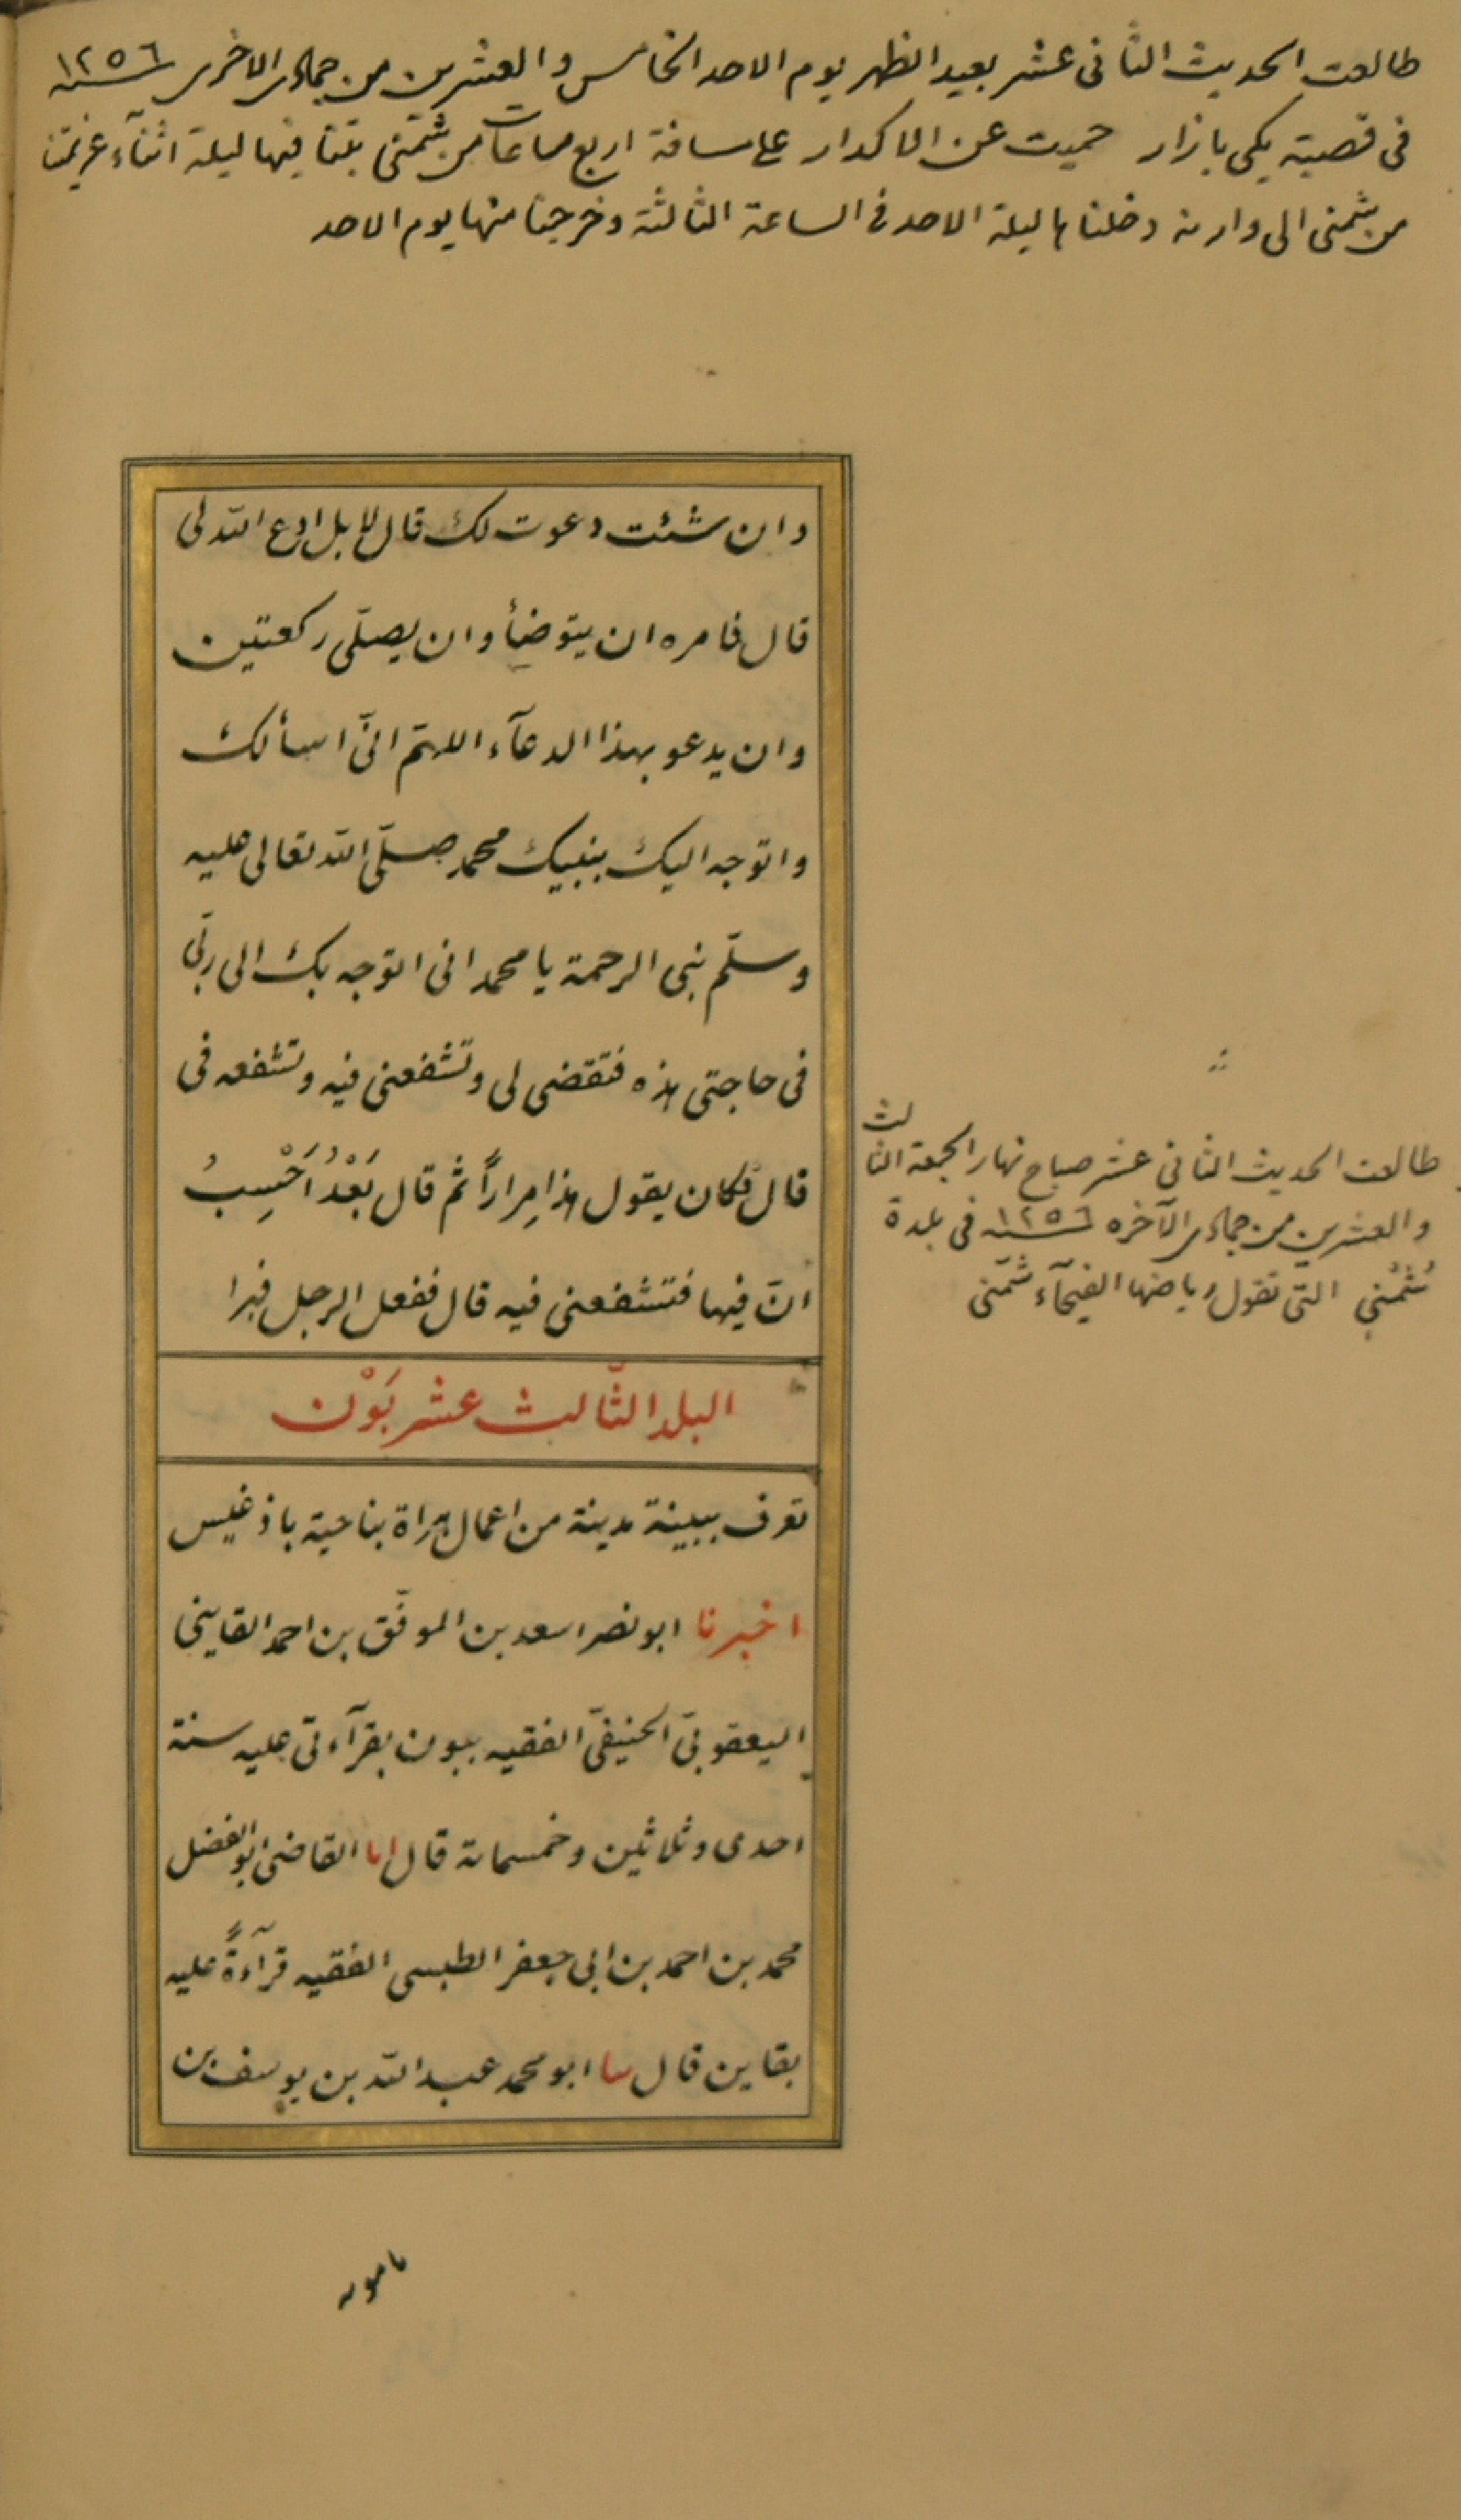 طالعت الحديث الثانى عشر بعيد الظهر يوم الاحد الخامس والعشرين من جمادى الاخرى سنة ١٢٥٦
فى قصبة يكى بازار حميت عن الاكدار على مسافة اربع ساعات من شمنى بتنا فيها ليلة اثنآء عزيمتنا
من شمنى الى وارنه دخلناها ليلة الاحد فى الساعة الثالثة وخرجنا منها يوم الاحد
وان شئت دعوت لك قال لا بل ادع الله لى
قال فامره ان يتوضأ وان يصلّى ركعتين
وان يدعو بهذا الدعآء اللهمّ انّى اسألك
واتوجه اليك بنبيك محمد صلّى الله تعالى عليه
وسلّم نبى الرحمة يا محمد انى اتوجه بك الى ربّى
فى حاجتى هذه فتقضى لى وتشفعنى فيه وتشفعه فى
قال فكان يقول هذا مِراراً ثم قال بَعْدُ اَحْسِبُ
انّ فيها فتشفعنى فيه قال ففعل الرجل فبرا
طالعت الحديث الثانى عشر صباح نهار الجمعة الثالث
والعشرين من جمادى الآخره سنة ١٢٥٦ فى بلدة
شُمْنى التى تقول رياضها الفيحآء شمّنى
البلد الثّالث عشر بَوْن
تعرف ببينة مدينة من اعمال هراة بناحية باذغيس
اخبرنا ابو نصر اسعد بن الموفّق بن احمد القاينى
اليعقوبىّ الحنيفىّ الفقيه ببون بقرآءتى عليه سنة
احدى وثلاثين وخمسمائة قال انا القاضى ابو الفضل
محمد بن احمد بن ابى جعفر الطبسى الفقيه قرآءةً عليه
بقاين قال ثنا ابو محمد عبد الله بن يوسف بن